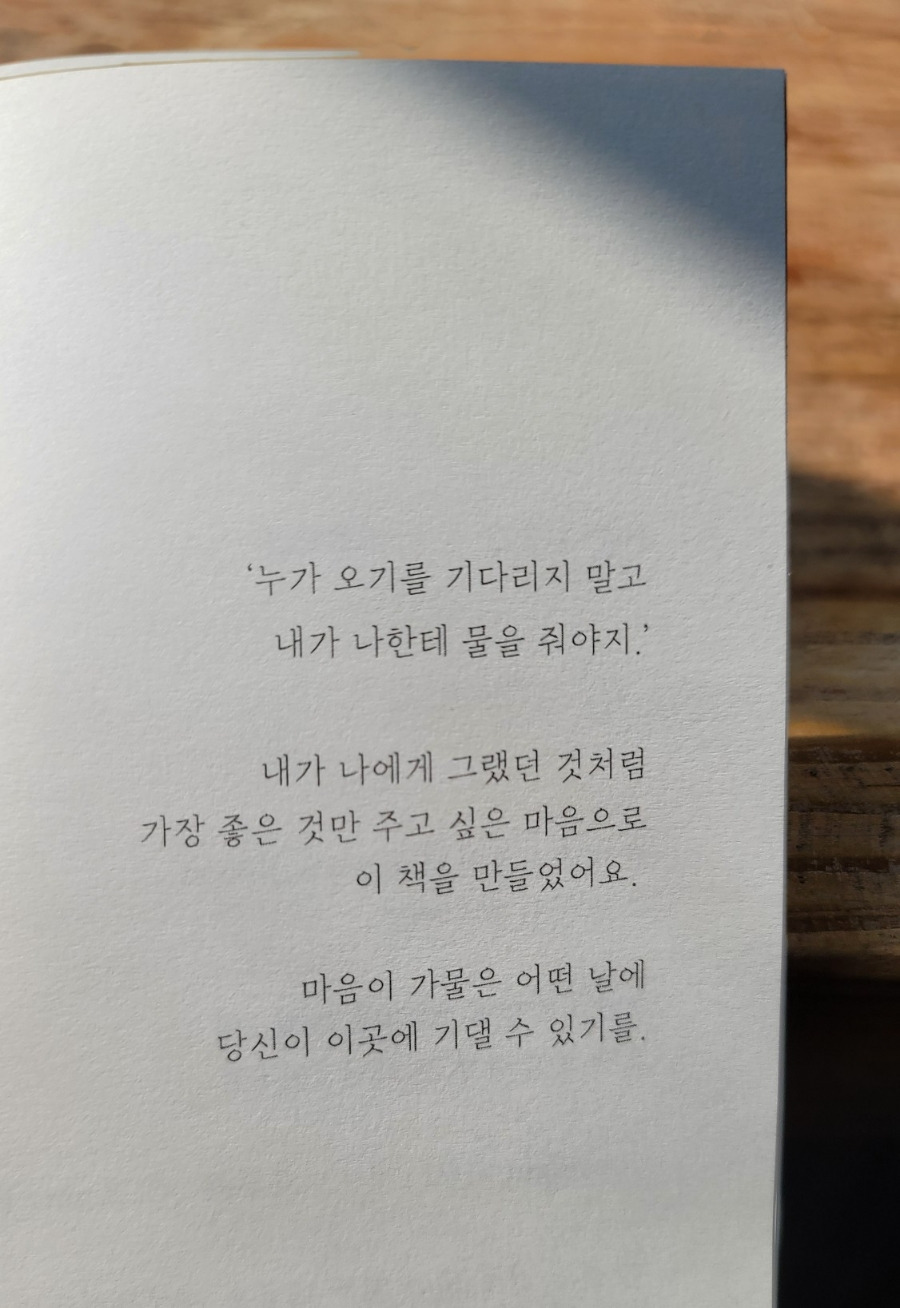 ‘누가 오기를 기다리지 말고
내가 나한테 물을 줘야지.’
내가 나에게 그랬던 것처럼
가장 좋은 것만 주고 싶은 마음으로
이 책을 만들었어요.
마음이 가물은 어떤 날에
당신이 이곳에 기댈 수 있기를.